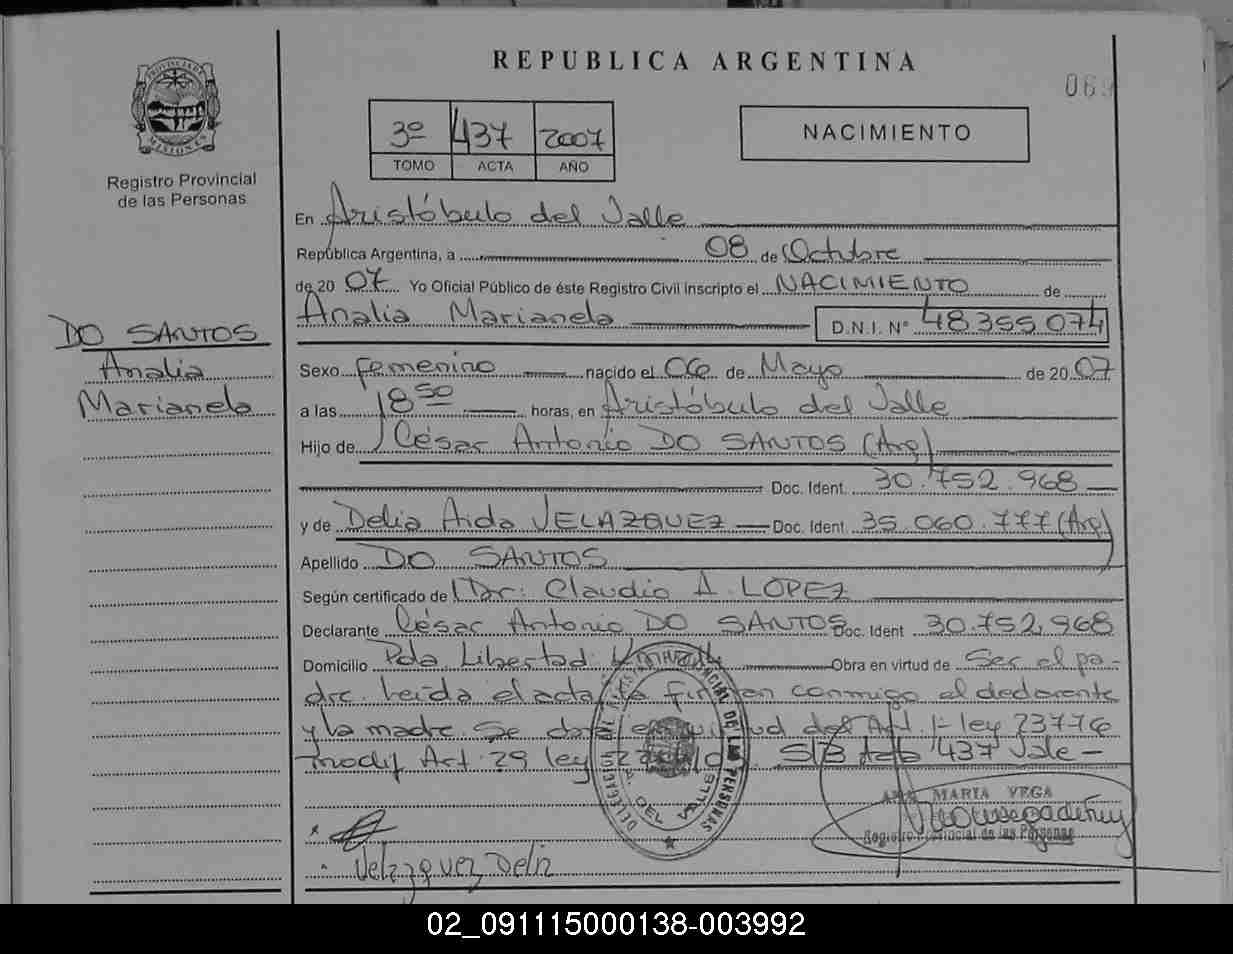 REPUBLICA ARGENTINA
069
PROVINCIA DE MISIONES
Registro Provincial
de las Personas
3º 437 2007
TOMO ACTA AÑO
NACIMIENTO
En Aristóbulo del Valle
República Argentina, a 08 de Octubre
de 20 07 Yo Oficial Público de éste Registro Civil inscripto el NACIMIENTO de
Analia Marianela D.N.I. Nº 48355074
DO SANTOS
Analia
Marianela
Sexo femenino nacido el 06 de Mayo de 20 07
a las 18 50 horas, en Aristóbulo del Valle
Hijo de César Antonio DO SANTOS (Arg)
Doc. Ident. 30.752.968
y de Delia Aida VELAZQUEZ Doc. Ident. 35.060.777 (Arg)
Apellido DO SANTOS
Según certificado de Dr: Claudio A. LOPEZ
Declarante César Antonio DO SANTOS Doc. Ident 30.752.968
Domicilio Pda Libertad Obra en virtud de Ser el pa-
dre. Leida el acta la firman conmigo el declarante
y la madre. Se Art. 1- ley 23776
modif Art. 29 ley S/B acta 437 Vale -
DELEGACION DEL REGISTRO PROVINCIAL DE LAS PERSONAS
A. DEL VALLE
ANA MARIA VEGA
Registro Provincial de las Personas
Velazquez Delia
02_091115000138-003992